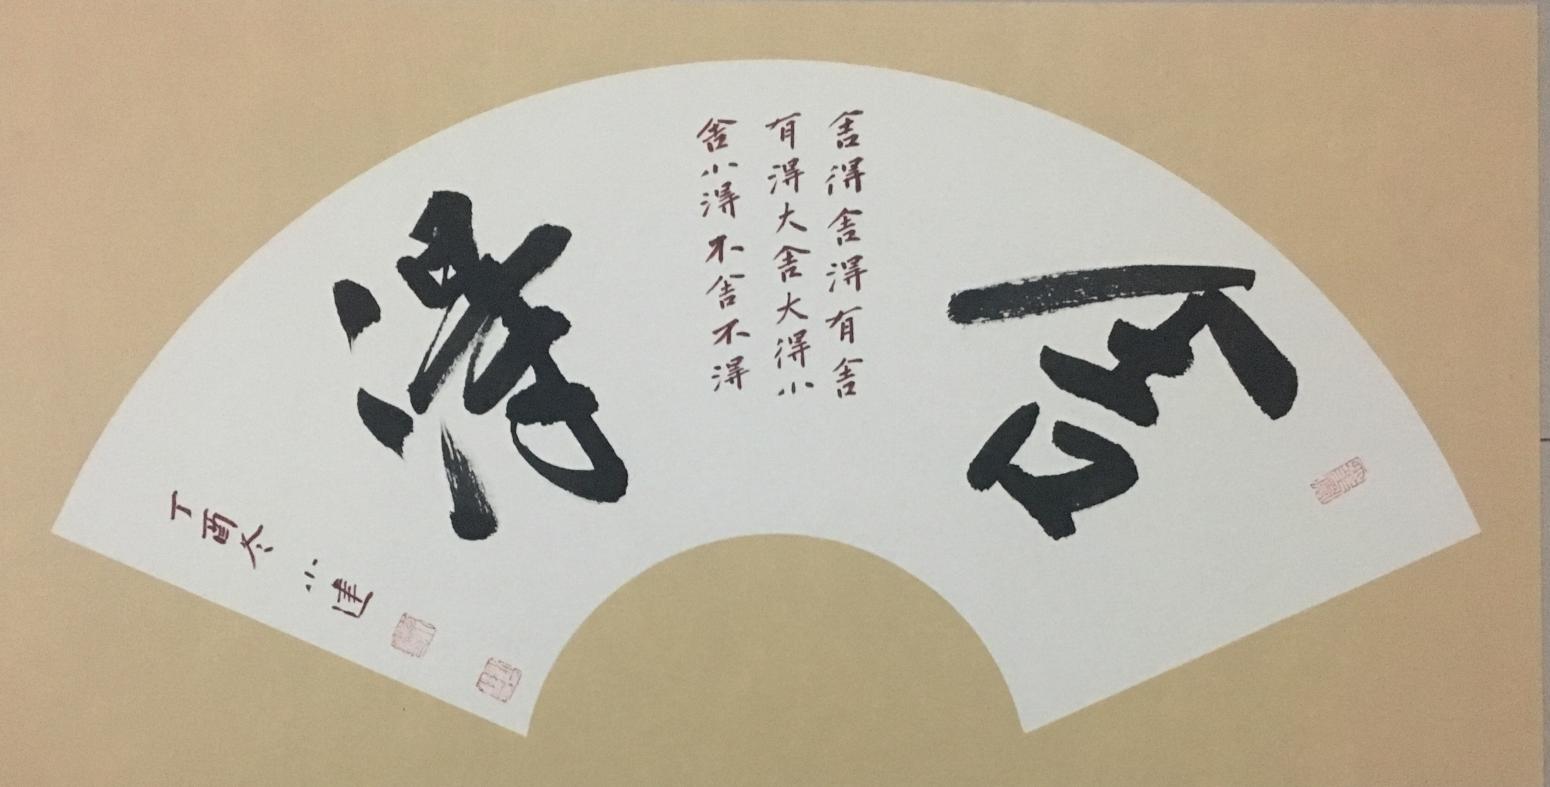 舍
舍得舍得有舍
有得大舍大得小
舍小得不舍不得
得
丁酉冬小建